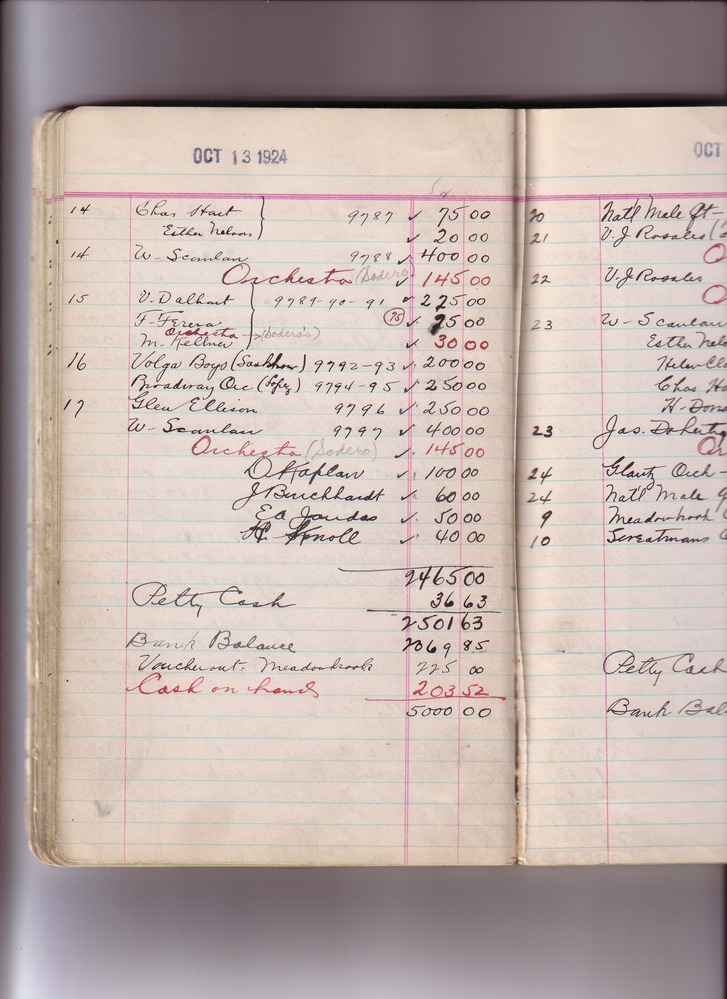 OCT 13 1924
14 Chas Hart 9787 ✓ 75 00
Esther Nelson ✓ 20 00
14 W- Scanlan 9788 ✓ 400 00
Orchestra (Sodero ✓ 145 00
15 V. Dalhart 9789-90-91 ✓ 225 00
F- Ferera (75) ✓ 25 00
Orchestra → (Sodero's)
M. Kellner ✓ 30 00
16 Volga Boys ( 9792-93 ✓ 200 00
Broadway Orc (Lopez) 9794-95 ✓ 250 00
17 Glen Ellison 9796 ✓ 250 00
W- Scanlan 9797 ✓ 400 00
Orchestra (Sodero) ✓ 145 00
D Kaplan ✓ 100 00
J Burckhardt ✓ 60 00
Ed Jaudas ✓ 50 00
H. Knoll ✓ 40 00
2465 00
Petty Cash 36 63
2501 63
Bank Balance 2069 85
Voucher out: Meadowbrook 225 00
Cash on hand 203 52
5000 00
OCT
20 Nat'l Male Qt-
21 V. J Rosales
22 V. J Rosales
23 W- Scanlan
Esther Nels
Helen Cla
Chas Ha
H- Don
23 Jas. Doherty
24 Glantz Orch -
24 Nat'l Male Q
9 Meadowbrook
10
Petty Cash
Bank Bal